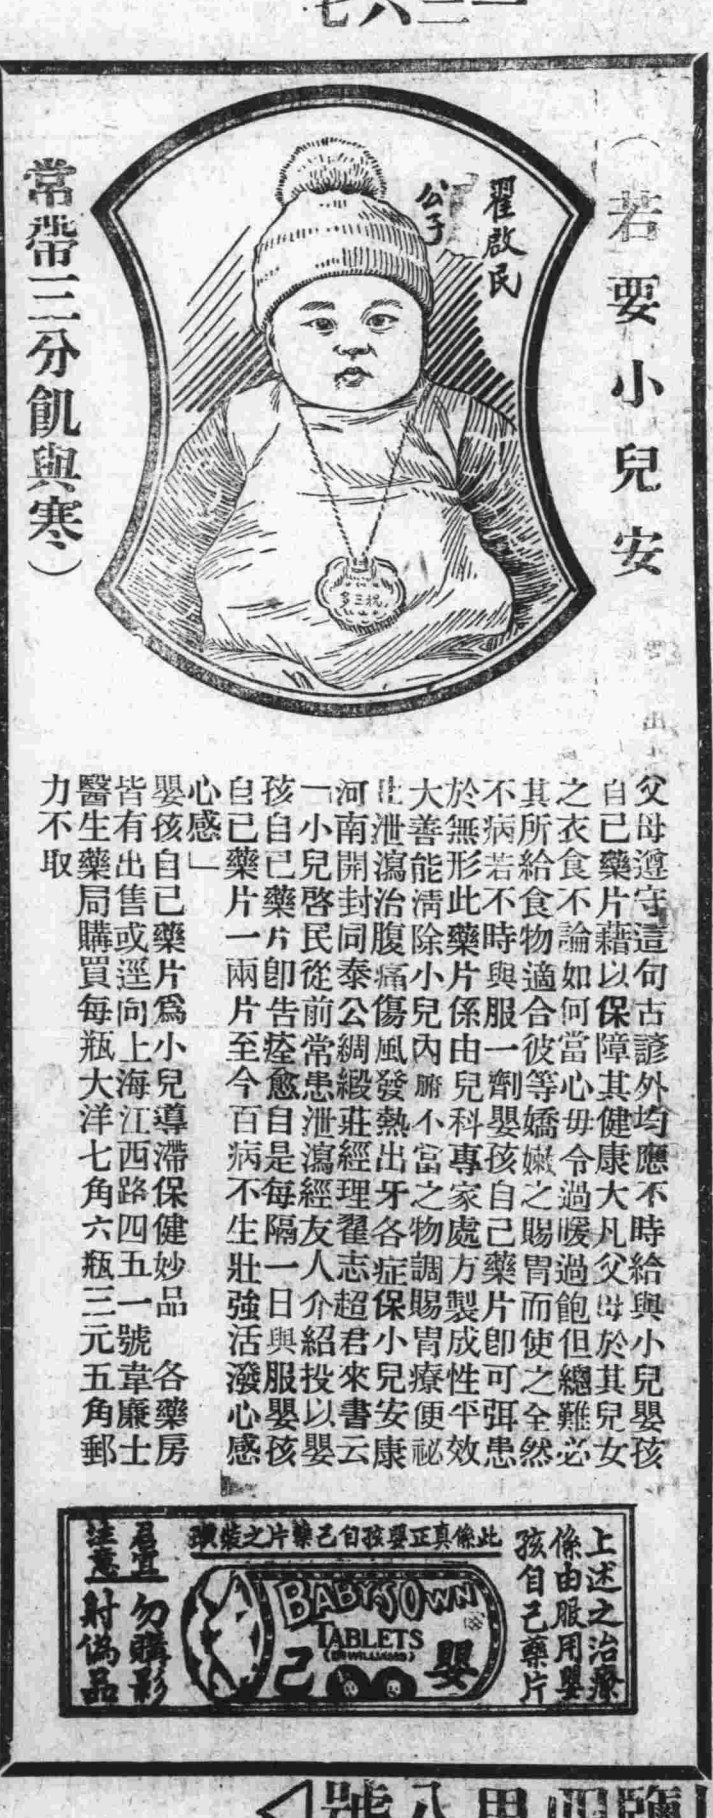 一二六七
（若要小兒安
常帶三分飢與寒）
翟啟民
公子
祝三多
父母遵守這句古諺外均應不時給與小兒嬰孩
自己藥片藉以保障其健康大凡父母於其兒女
之衣食不論如何當心毋令過暖過飽但總難必
其所給食物適合彼等嬌嫩之腸胃而使之全然
不病若不時與服一劑嬰孩自己藥片卽可弭患
於無形此藥片係由兒科專家處方製成性平效
大善能淸除小兒內腑不當之物調腸胃療便祕
止泄瀉治腹痛傷風發熱出牙各症保小兒安康
河南開封同泰公綢緞莊經理翟志超君來書云
「小兒啓民從前常患泄瀉經友人介紹投以嬰
孩自己藥片卽告痊愈自是每隔一日與服嬰孩
自己藥片一兩片至今百病不生壯強活潑心感
心感」
嬰孩自己藥片爲小兒導滯保健妙品　各藥房
皆有出售或逕向上海江西路四五一號韋廉士
醫生藥局購買每瓶大洋七角六瓶三元五角郵
力不取
上述之治療
係由服用嬰
孩自己藥片
此係真正嬰孩自己藥片之裝璜
BABY'S OWN
TABLETS
(DR WILLIAMS)
嬰
己
君宜
注意
勿購影
射偽品